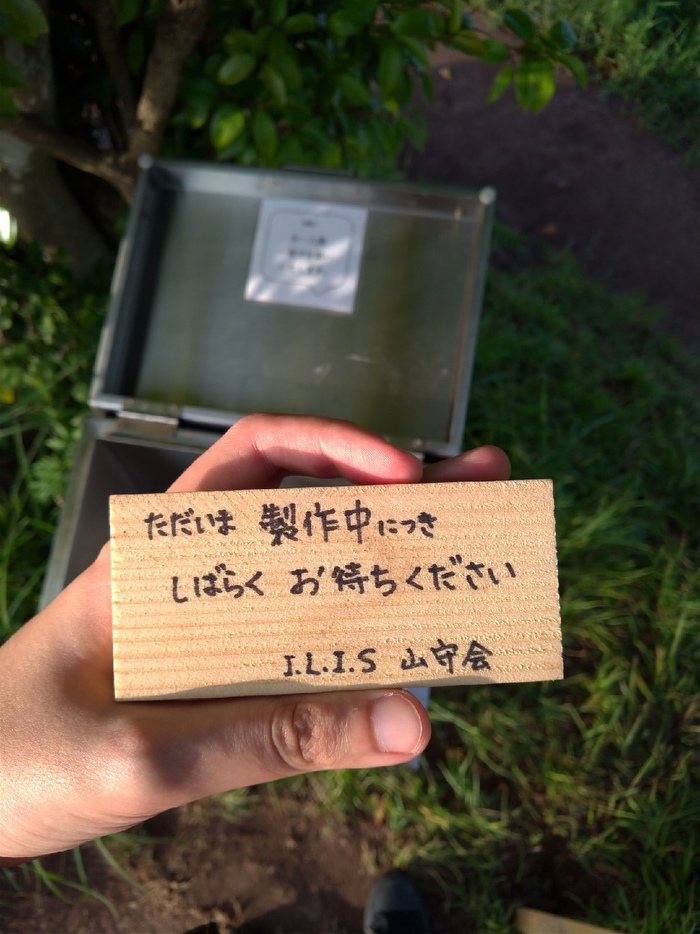 ただいま 製作中につき
しばらく お待ちください
I.L.I.S 山守会